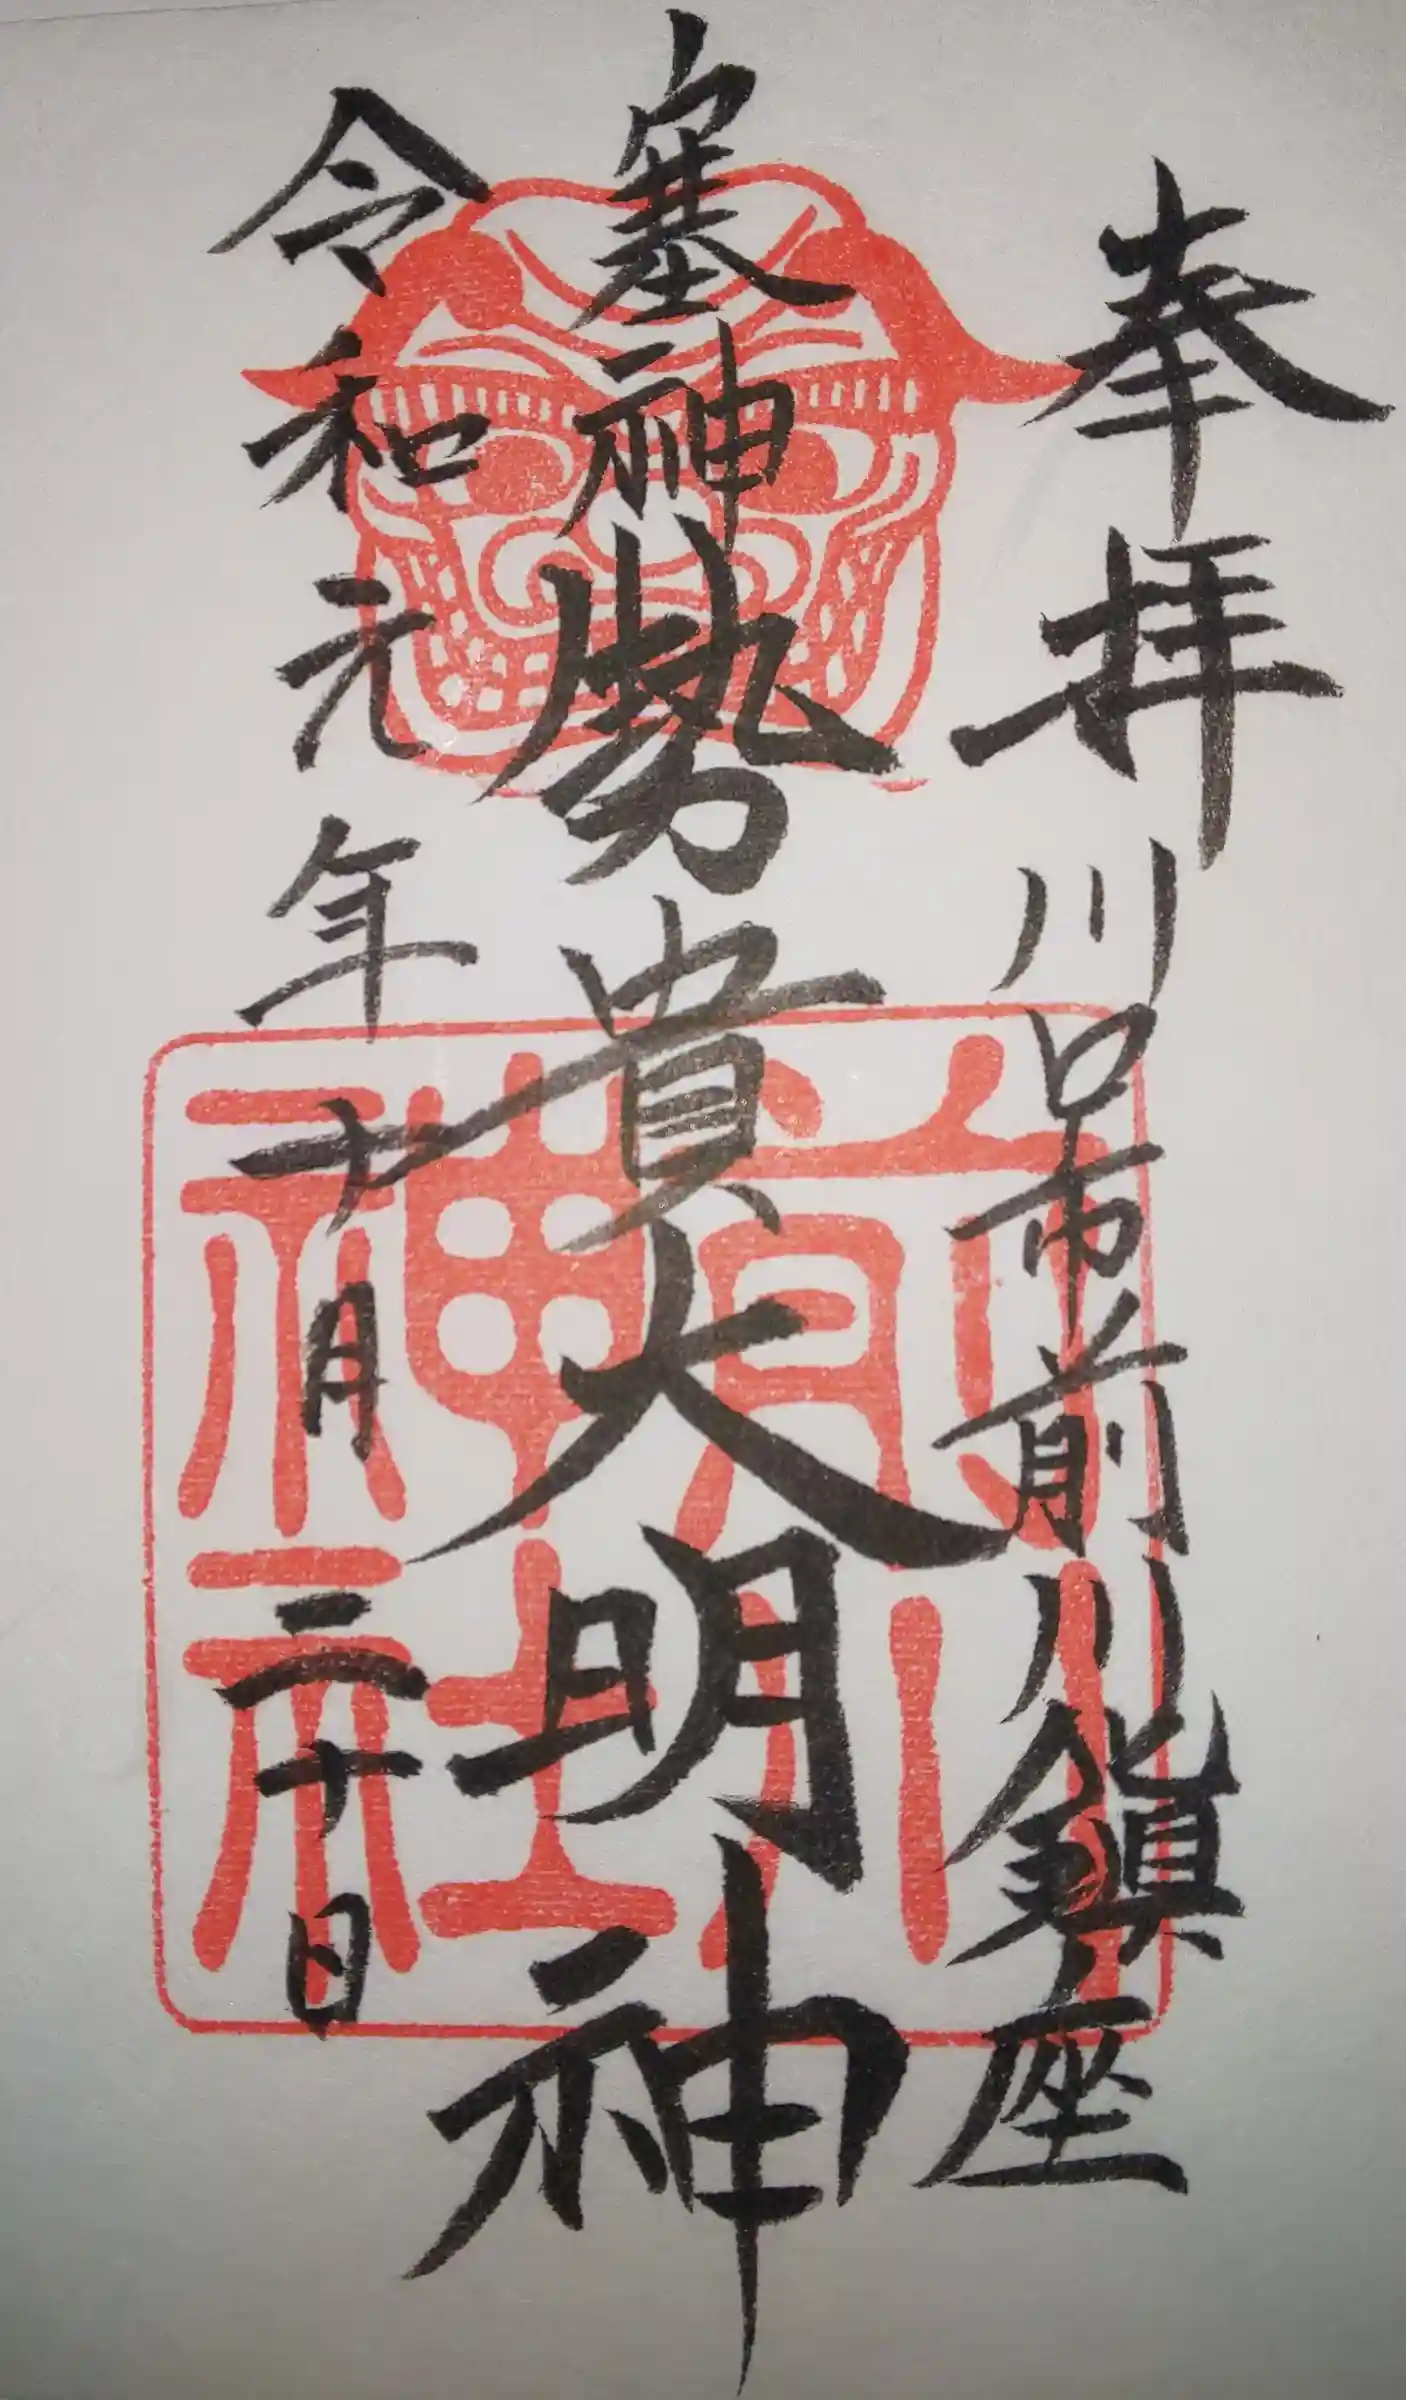 奉拝
川口市前川鎮座
塞神勢貴大明神
令和元年十月三十日
前川神社